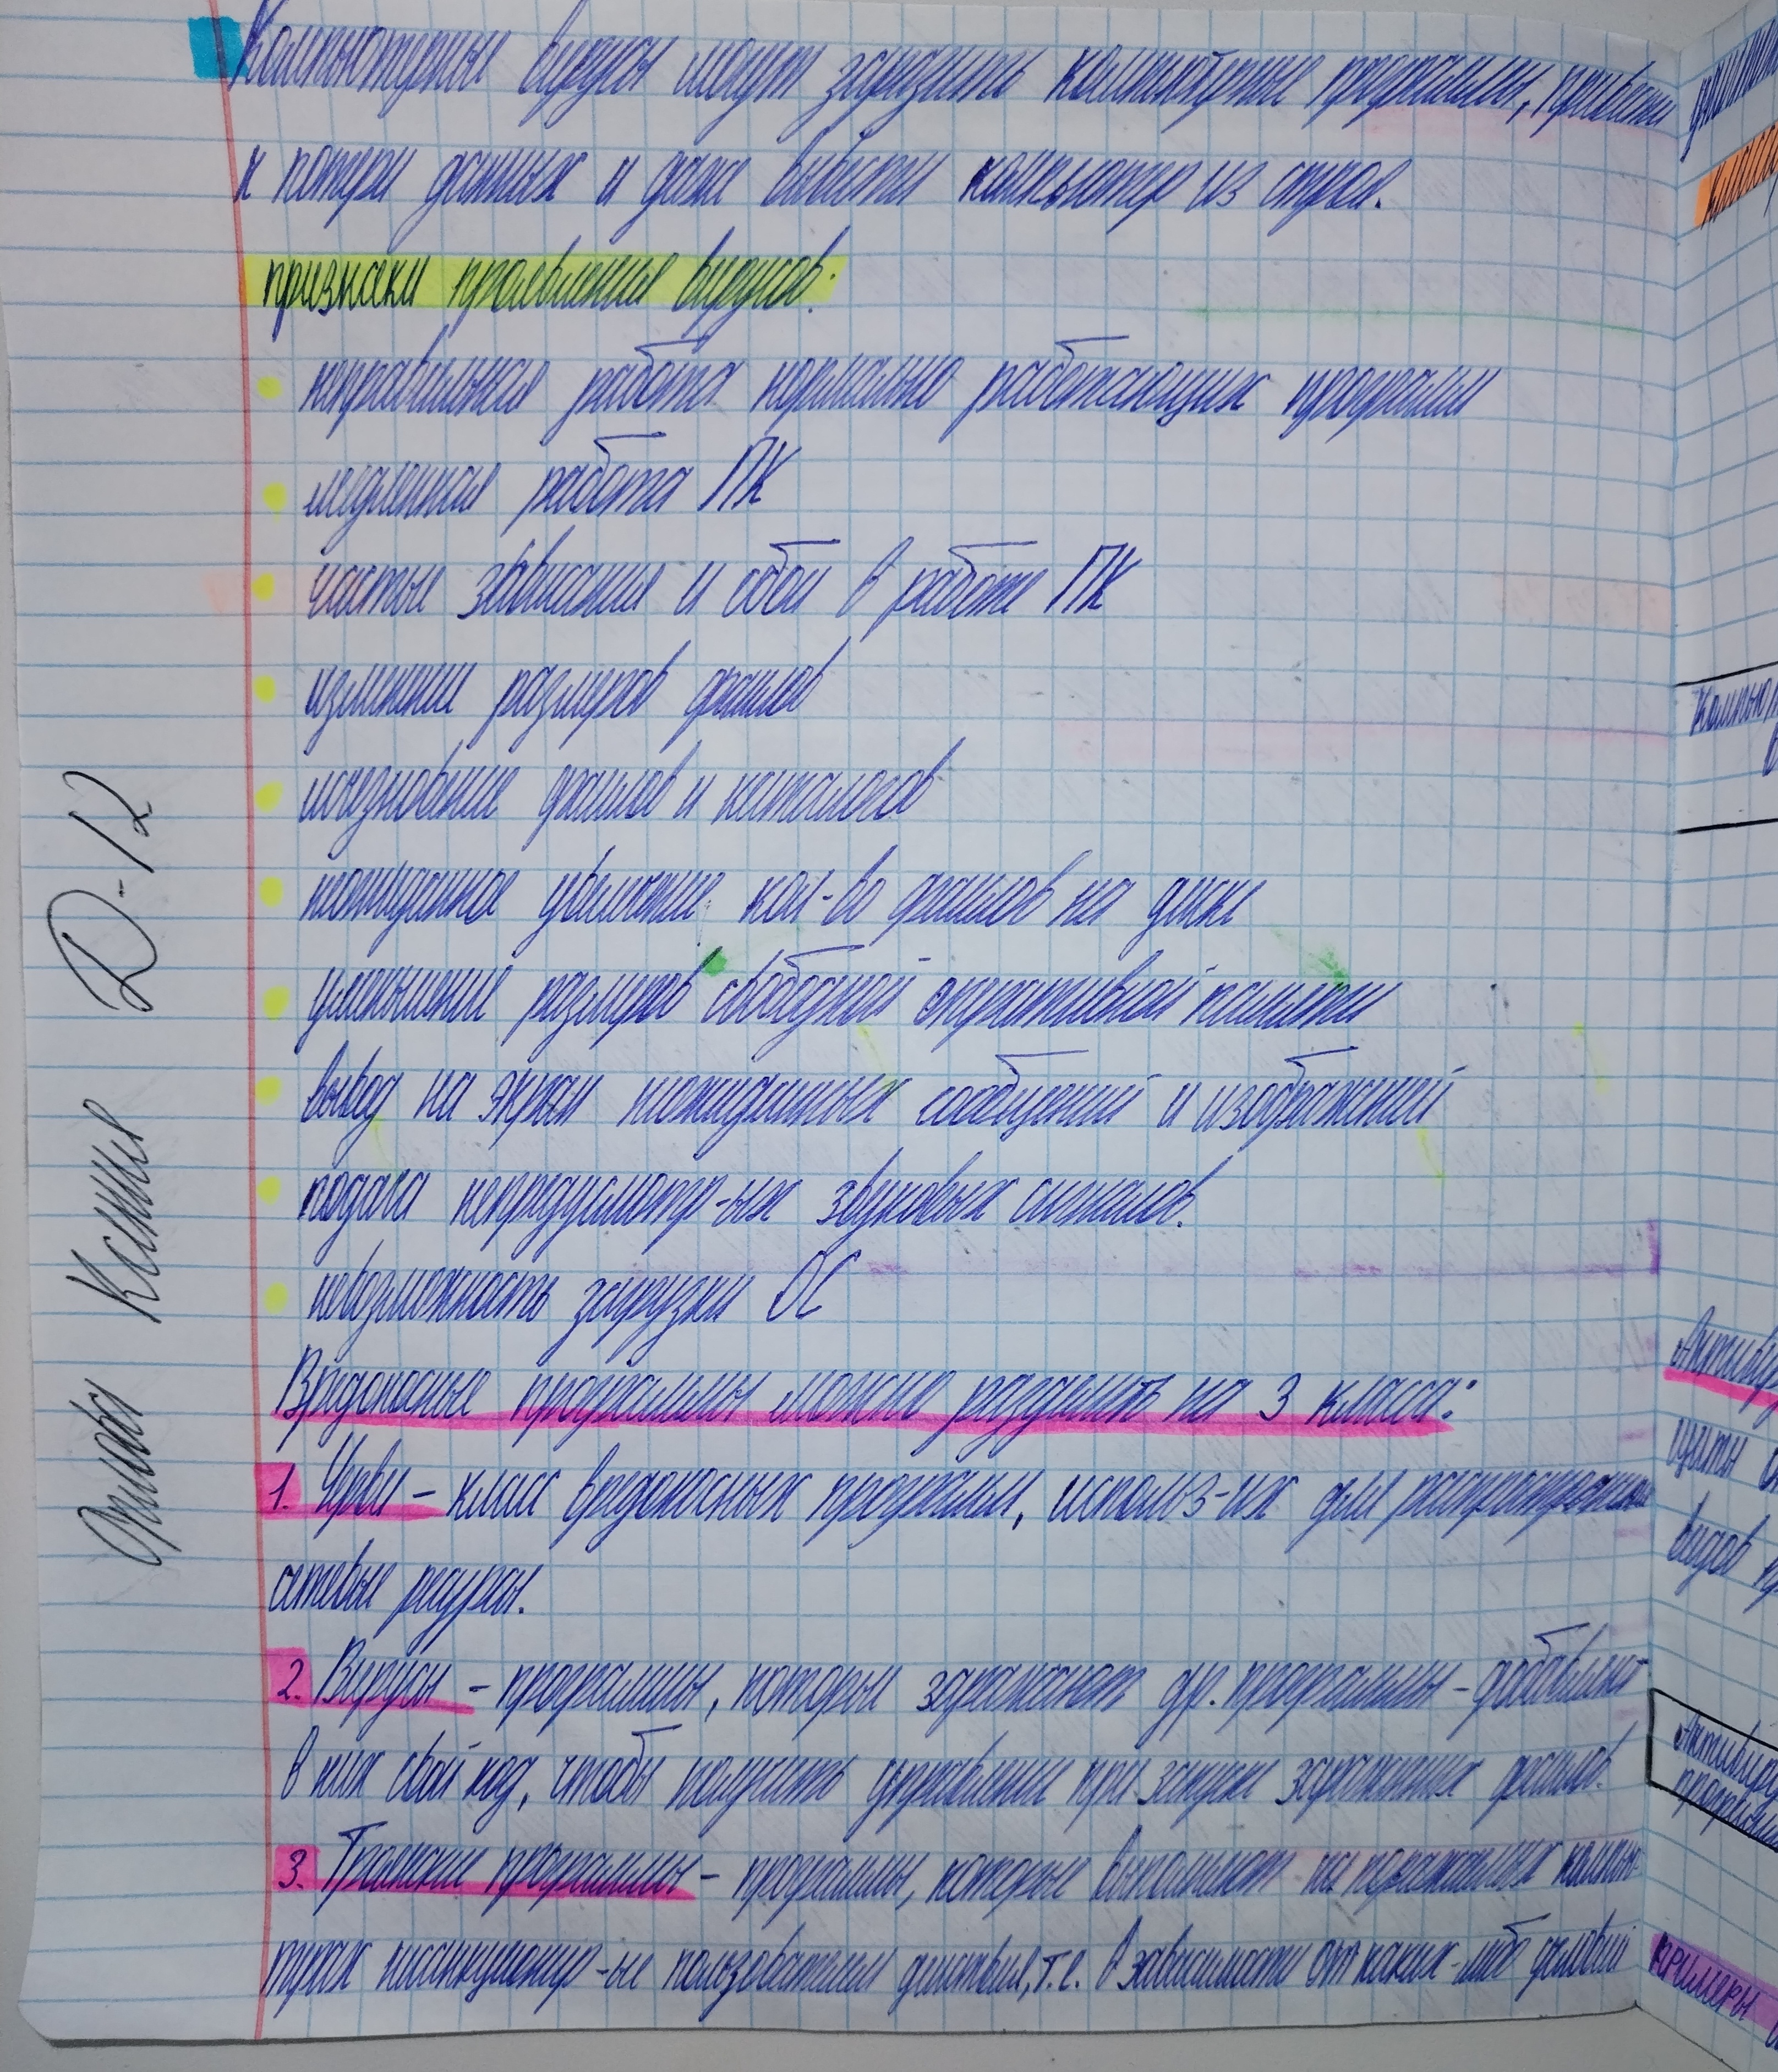 Компьютерные вирусы могут заразить компьютерные программы, привести
к потери данных и даже вывести компьютер из строя.
признаки проявления вирусов:
неправильная работа нормально работающих программ
медленная работа ПК
частые зависания и сбои в работе ПК
изменение размеров файлов
исчезновение файлов и каталогов
неожиданное увеличение кол-во файлов на диске
уменьшение размеров свободной оперативной памяти
вывод на экран неожиданных сообщений и изображений
подача непредусмотр-ых звуковых сигналов.
невозможность загрузки ОС
Вредоносные программы можно разделить на 3 класса:
1. Черви - класс вредоносных программ, использ-их для распространения
сетевые ресурсы.
2. Вирусы - программы, которые заражают др. программы - добавляют
в них свой код, чтобы получить управление при запуске зараженных файлов.
3. Троянские программы - программы, которые выполняют на поражаемых компью-
терах несанкционир-ые пользователем действия, т.е. в зависимости от каких-либо условий
Ксения Д-12
Компью
Антивиру
видов
Антивиру
програм
примеры